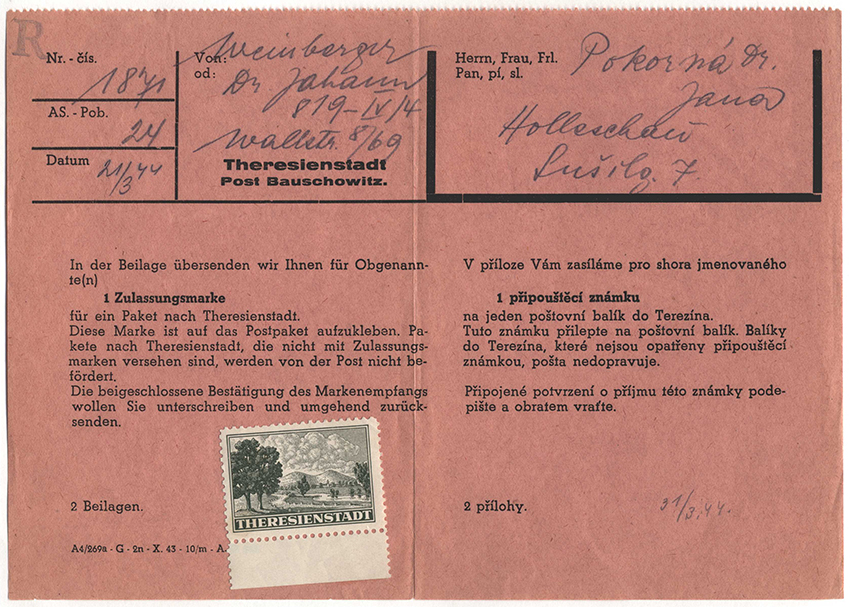 R
Nr. - čís.
1871
AS. - Pob.
24
Datum
21/3 44
Von: Weinberger
od: Dr Johann
819-IV/4
Wallstr. 8/69
Theresienstadt
Post Bauschowitz.
Herrn, Frau, Frl.
Pan, pí, sl.
Pokorná Dr.
Jana
Holleschau
Sušilg. 7.
In der Beilage übersenden wir Ihnen für Obgenann-
te(n)
1 Zulassungsmarke
für ein Paket nach Theresienstadt.
Diese Marke ist auf das Postpaket aufzukleben. Pa-
kete nach Theresienstadt, die nicht mit Zulassungs-
marken versehen sind, werden von der Post nicht be-
fördert.
Die beigeschlossene Bestätigung des Markenempfangs
wollen Sie unterschreiben und umgehend zurück-
senden.
2 Beilagen.
A4/269a - G - 2n - X. 43 - 10/m - A.
THERESIENSTADT
V příloze Vám zasíláme pro shora jmenovaného
1 připouštěcí známku
na jeden poštovní balík do Terezína.
Tuto známku přilepte na poštovní balík. Balíky
do Terezína, které nejsou opatřeny připouštěcí
známkou, pošta nedopravuje.
Připojené potvrzení o příjmu této známky pode-
pište a obratem vraťte.
2 přílohy.
31/3.44.